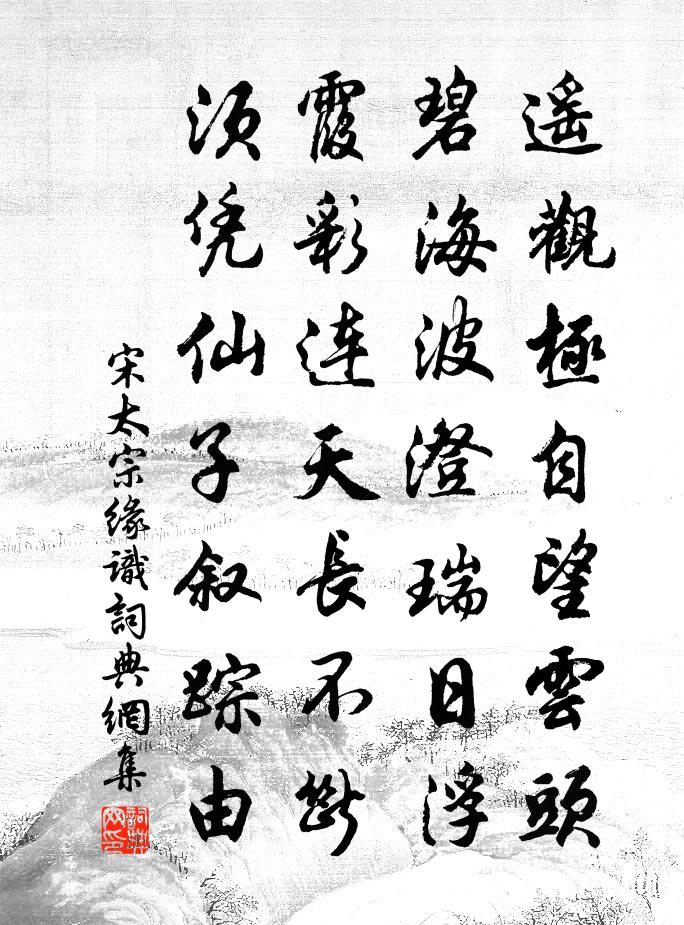 遥觀極自望雲頭
碧海波澄瑞日浮
霞彩連天長不斷
須凭仙子叙踪由
宋太宗緣識詞典網集